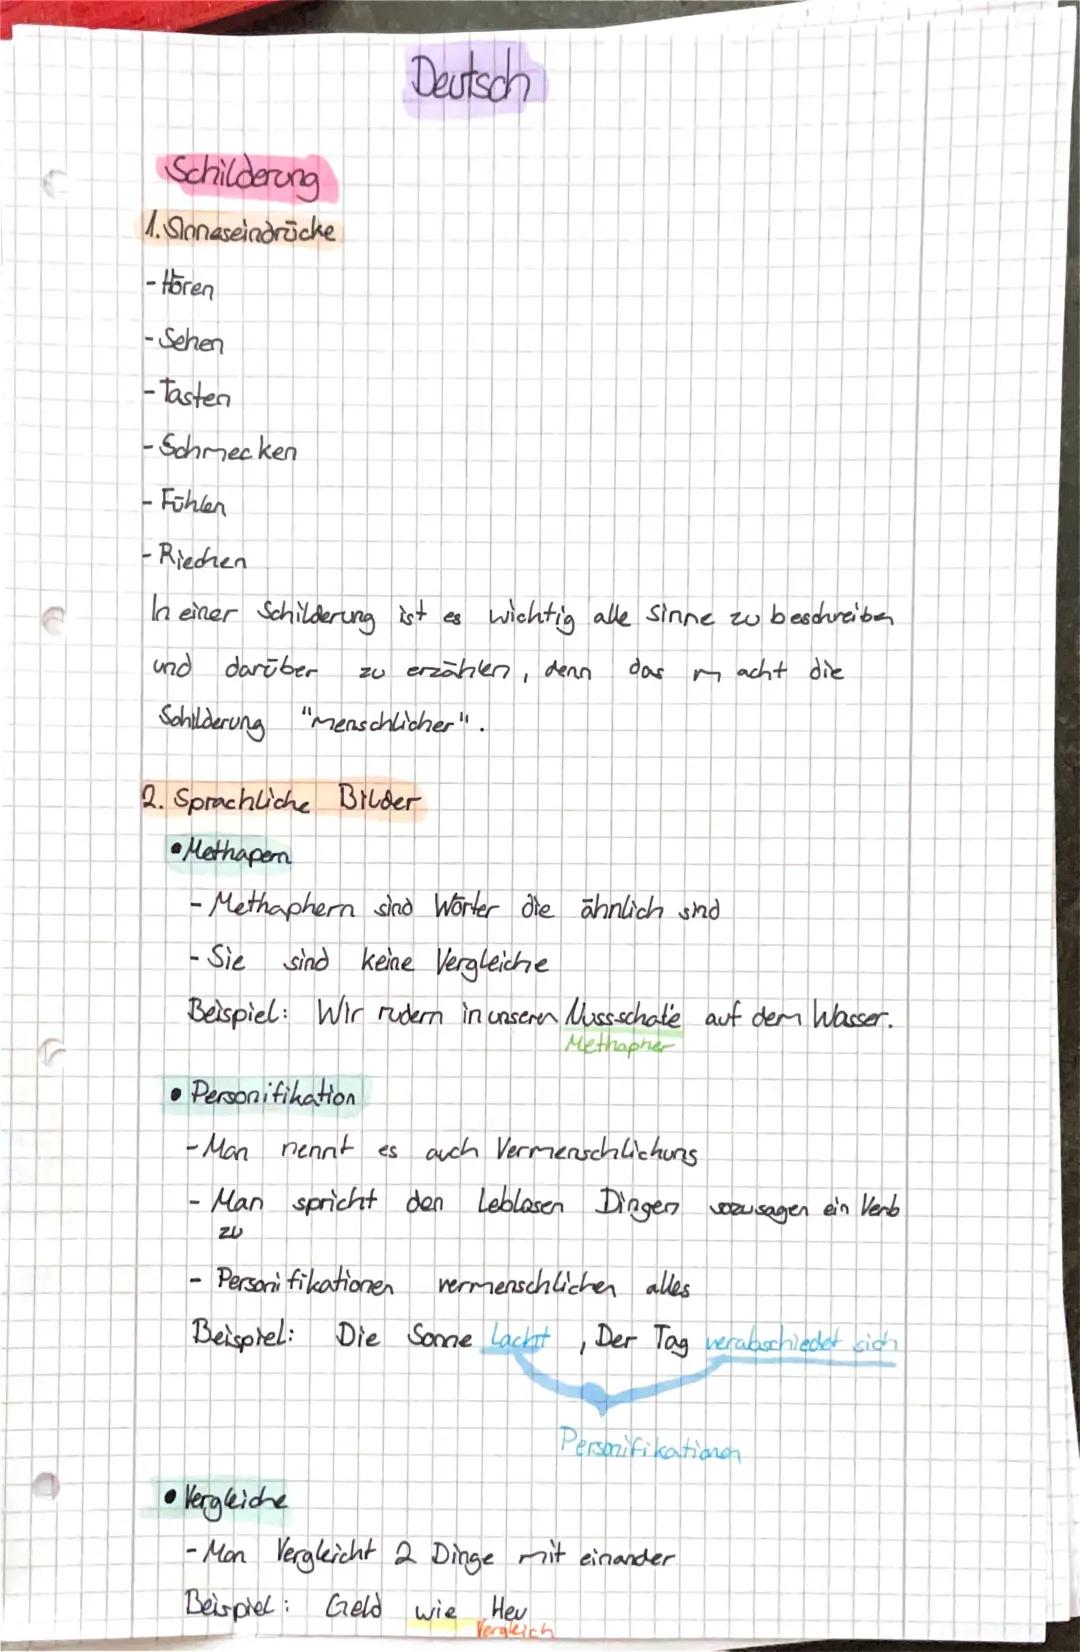 Deutsch
Schilderung
1. Sinneseindrücke
- Hören
- Sehen
- Tasten
- Schmecken
- Fühlen
- Riechen
In einer Schilderung ist es wichtig alle Sinne zu beschreiben
und darüber zu erzählen, denn das macht die
Schilderung "menschlicher".
2. Sprachliche Bilder
• Methapern
- Methaphern sind Wörter die ähnlich sind
- Sie sind keine Vergleiche
Beispiel: Wir rudern in unseren Nussschale auf dem Wasser.
Methapher
• Personifikation
- Man nennt es auch Vermenschlichung
- Man spricht den Leblosen Dingen sozusagen ein Verb
zu
- Personifikationen vermenschlichen alles
Beispiel: Die Sonne lacht, Der Tag verabschiedet sich
Personifikationen
• Vergleiche
- Man Vergleicht 2 Dinge mit einander
Beispiel: Geld wie Heu
Vergleich